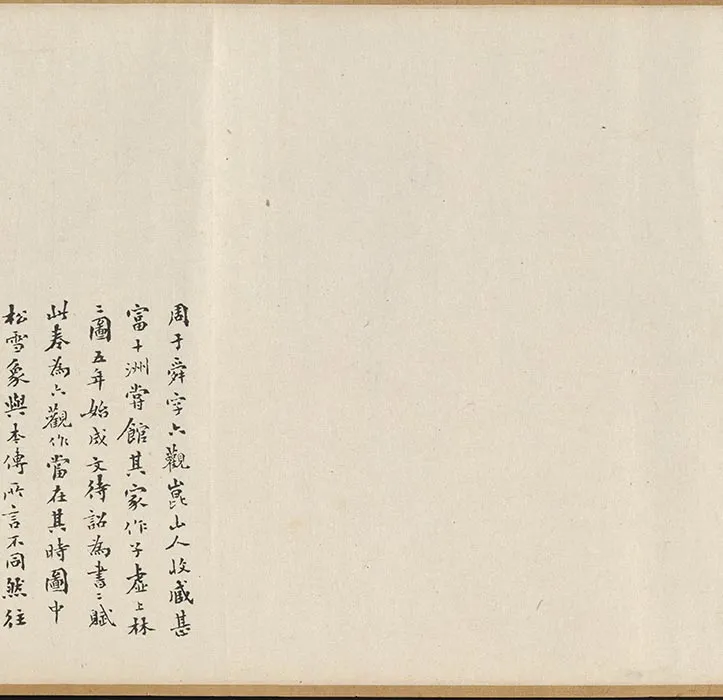 周于舜字六觀崑山人收藏甚
富十洲嘗館其家作子虛上林
二圖五年始成文待詔為書二賦
此奉為六觀作當在其時圖中
松雪象與本傳所言不同然往